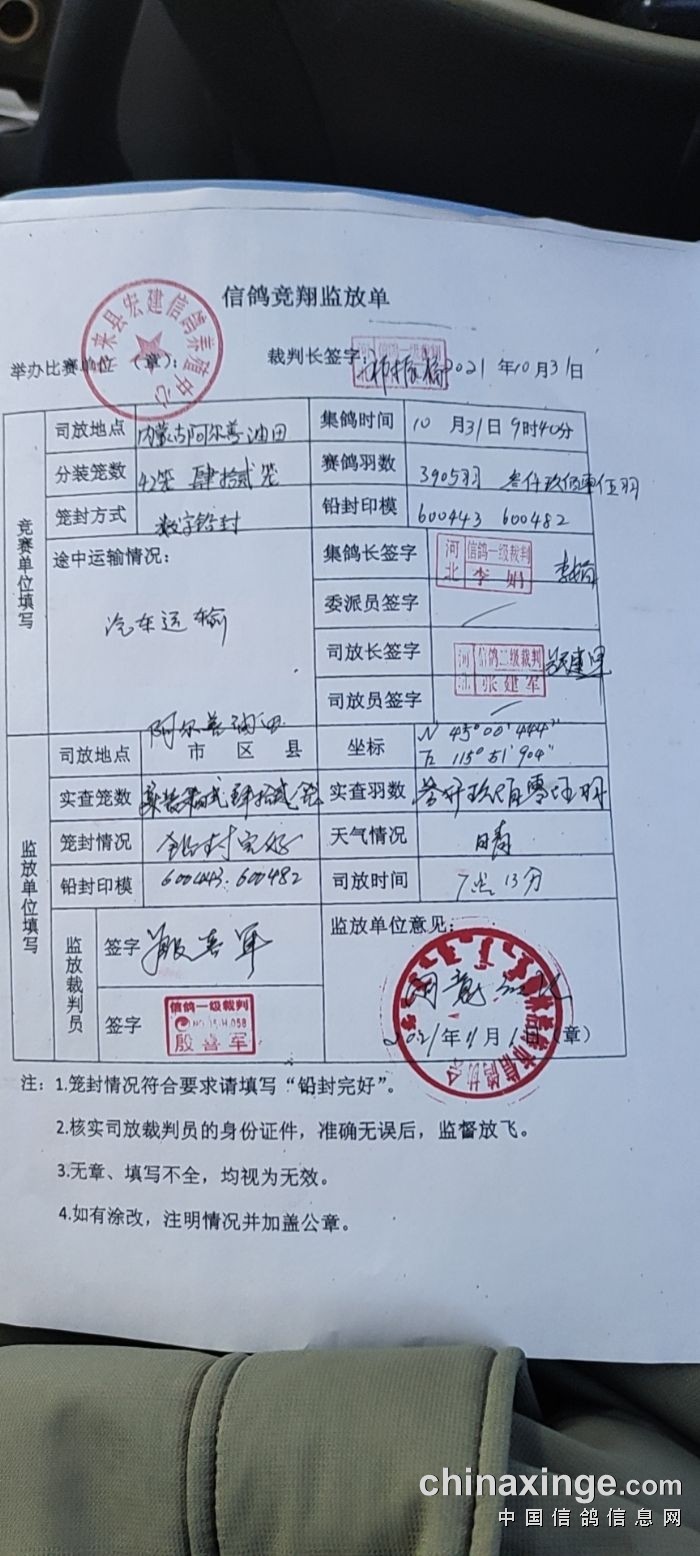 信鸽竞翔监放单
来县宏建信鸽养殖中心
举办比赛单位（章）： 裁判长签字： 2021 年10月31日
信鸽一级裁判
竞赛单位填写
司放地点 内蒙古阿尔善油田 集鸽时间 10 月31日9时40分
分装笼数 42笼 肆拾贰笼 赛鸽羽数 3905羽 叁仟玖佰零伍羽
笼封方式 数字铅封 铅封印模 600443 600482
途中运输情况： 集鸽长签字 河北 信鸽一级裁判 李娟 李娟
汽车运输
委派员签字
司放长签字 河北 信鸽二级裁判 张建军 张建军
司放员签字
监放单位填写
阿尔善油田
司放地点 市 区 县 坐标 N 45°00′444″
115°51′904″
实查笼数 肆拾贰笼 实查羽数 叁仟玖佰零伍羽
笼封情况 铅封完好 天气情况 晴
铅封印模 600443. 600482 司放时间 7点13分
监放裁判员
签字 殷喜军 监放单位意见：
签字 信鸽一级裁判
NO.15H.058
殷喜军
2021年11月1日（章）
注：1.笼封情况符合要求请填写“铅封完好”。
2.核实司放裁判员的身份证件，准确无误后，监督放飞。
3.无章、填写不全，均视为无效。
4.如有涂改，注明情况并加盖公章。
chinaxinge.com
中国信鸽信息网